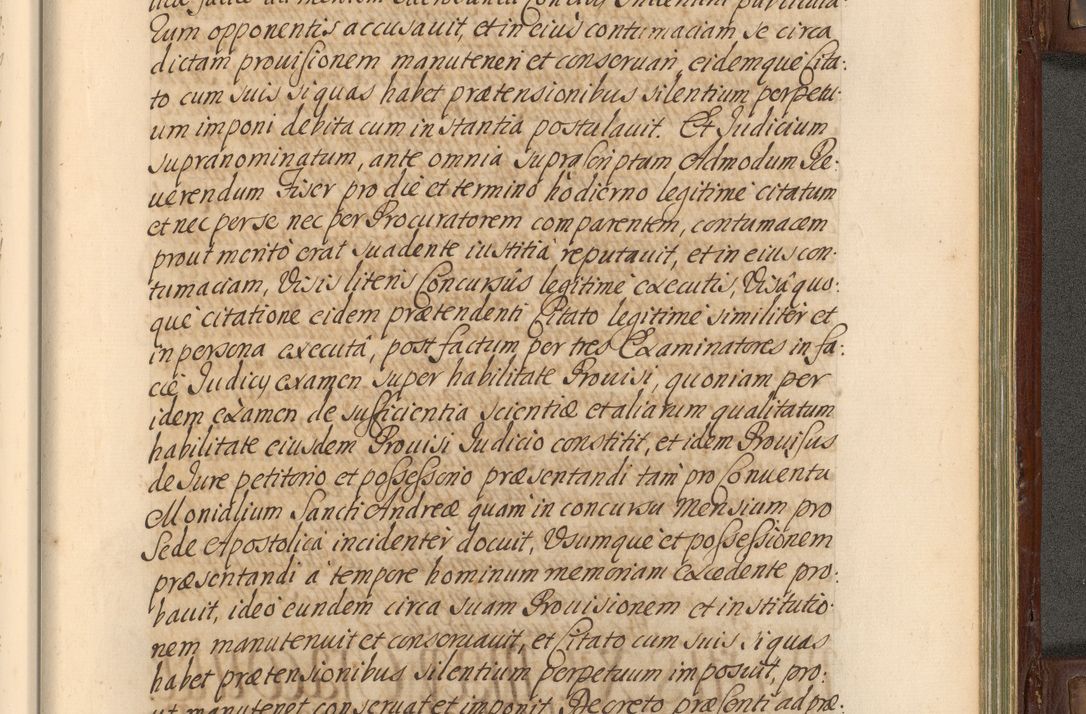 tum opponentis accusavit, et in eius contumaciam se circa
dictam provisionem manuteneri et conservari, eidemque Cita:
to cum suis si quas habet prætensionibus silentium perpetu:
um imponi debita cum instantia postulavit. Et Judicium
supranominatum, ante omnia suprascriptam Admodum Re:
verendum Fiser pro die et termino hodierno legitimè citatum
et nec per se nec per Procuratorem comparentem, contumacem
prout meritò erat suadente iustitiâ reputavit, et in eius con:
tumaciam, Visis literis Concursûs legitimè executis, Visâ quo:
que citatione eidem prætendenti Citato legitimè similiter et
in persona executâ, post factum per tres Examinatores in fa:
cie Judicij examen super habilitate Provisi, quoniam per
idem examen de sufficientia scientiæ et aliarum qualitatum
habilitate eiusdem Provisi Judicio constitit, et idem Provisus
de Jure petitorio et possessorio præsentandi tam pro Conventu
Monialium Sancti Andreæ quam in concursu Mensium pro
Sede Apostolica incidenter docuit, Usumque et possessionem
præsentandi à tempore hominum memoriam excedente pro:
bavit, ideo eundem circa suam Provisionem et institutio:
nem manutenuit et conservavit, et Citato cum suis si quas
habet prætensionibus silentium perpetuum imposuit, pro:
ut manutenet conservat et imponit Decreto præsenti ad præ: